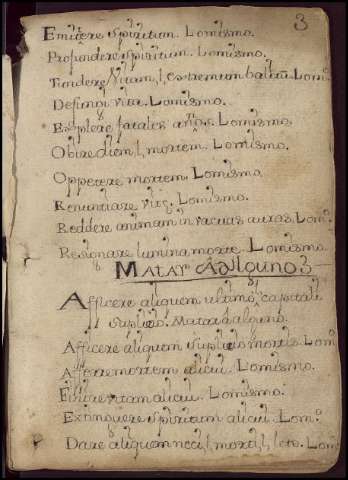 3
Emittere spiritum. Lomismo.
Profundere spiritum. Lomismo.
Fundere vitam, l, extremum halitũ Lomº.
Defungi vita. Lomismo.
Explere fatales años. Lomismo
Obire diem, l, mortem. Lomismo.
Oppetere mortem. Lomismo
Renuntiare vitę. Lomismo.
Reddere animam in vacuas auras. Lomº.
Resignare lumina morte. Lomismo
Matar Aalguno
Afficere aliquem ultimo, capitali
suplicio. Matar à alguno.
Afficere aliquem supplicio mortis. Lom
Afferre mortem alicui. Lomismo.
Finire vitam alicui. Lomismo.
Extinguere spiritum alicui. Lomº.
Dare aliquem neci, l, morti, l, leto. Lom